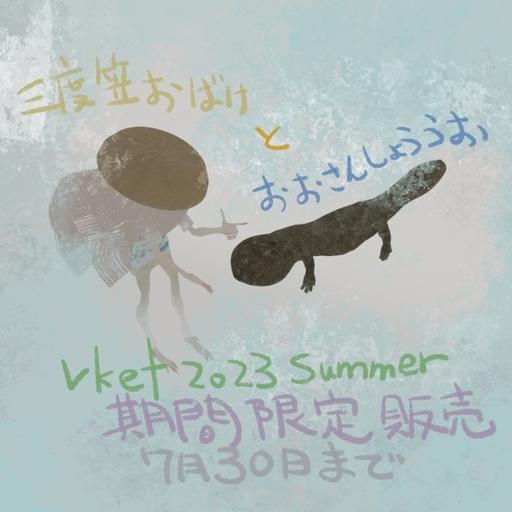 三度笠おばけ
と
おおさんしょううお
vket 2023 summer
期間限定販売
7月30日まで